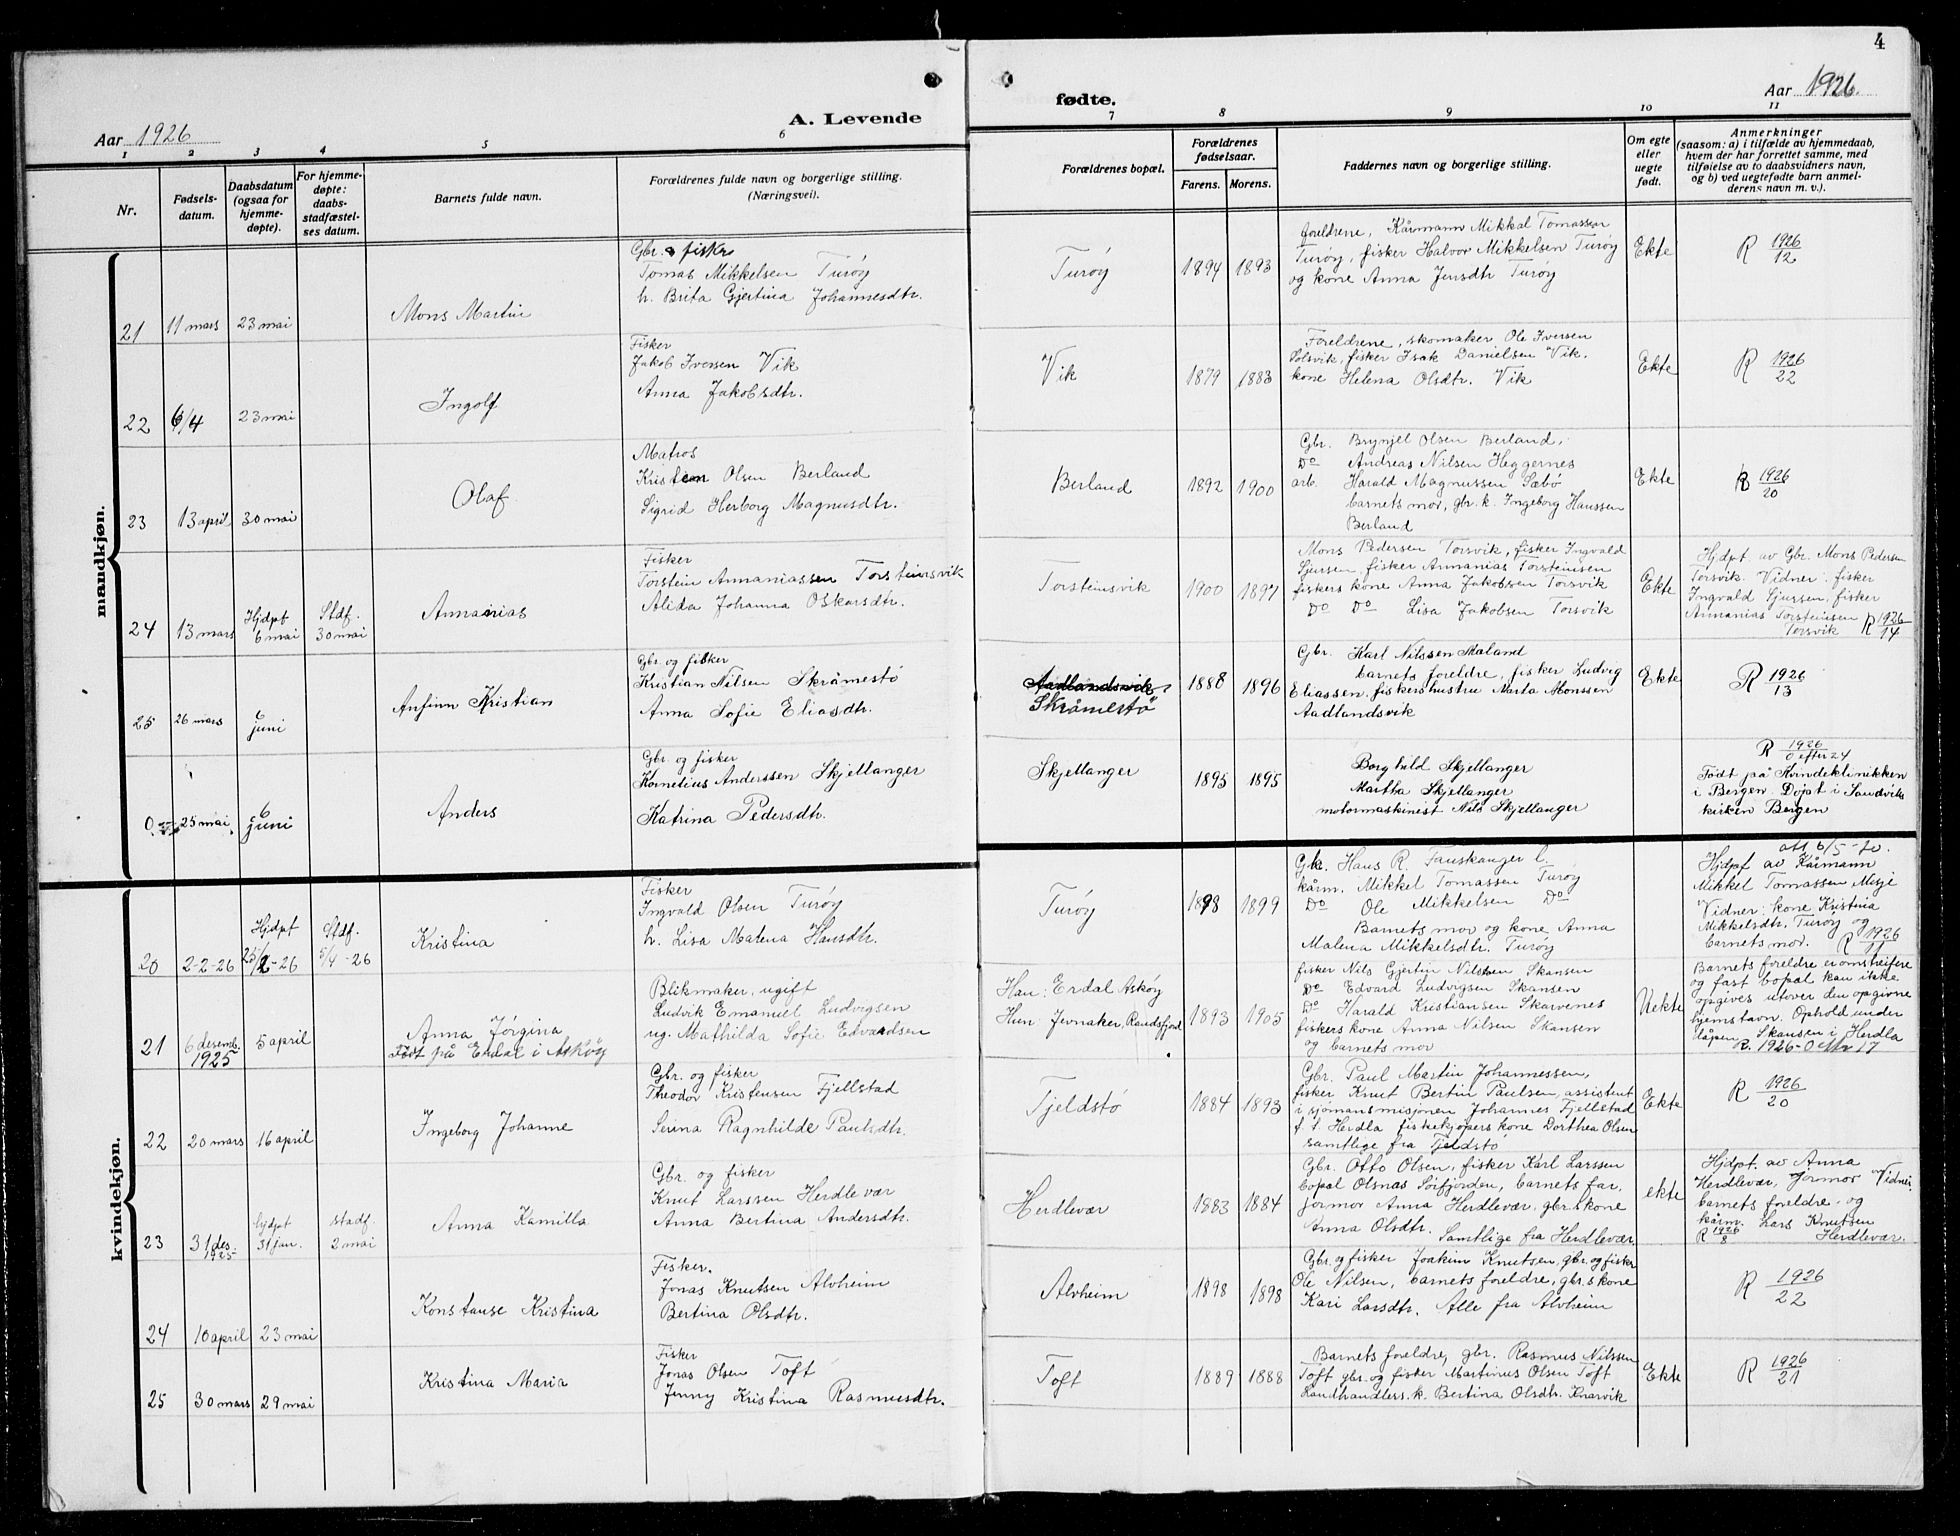 4
Aar 1926
A. Levende
fødte.
Aar 1926.
1 2 3 4 5 6 7 8 9 10 11
Nr.
Fødsels-
datum.
Daabsdatum
(ogsaa for
hjemme-
døpte).
For hjemme-
døpte:
daabs-
stadfæstel-
ses datum.
Barnets fulde navn.
Forældrenes fulde navn og borgerlige stilling.
(Næringsvei).
Forældrenes bopæl.
Forældrenes
fødselsaar.
Farens. Morens.
Faddernes navn og borgerlige stilling.
Om egte
eller
uegte
født.
Anmerkninger
(saasom: a) i tilfælde av hjemmedaab,
hvem der har forrettet samme, med
tilføielse av to daabsvidners navn,
og b) ved uegtefødte barn anmel-
derens navn m. v.).
mandkjøn.
21 11 mars 23 mai
Mons Martin
Gbr. & fisker
Tomas Mikkelsen Turøy
h. Brita Gjertina Johannesdtr.
Turøy
1894 1893
foreldrene, Kårmann Mikkal Tomassen
Turøy, fisker Halvor Mikkelsen Turøy
og kone Anna Jensdtr Turøy
Ekte
R 1926
12
22 6/4 23 mai
Ingolf
Fisker
Jakob Iversen Vik
Anna Jakobsdtr.
Vik
1879 1883
Foreldrene, skomaker Ole Iversen
Solsvik, fisker Isak Danielsen Vik.
kone Helena Olsdtr. Vik
Ekte
R 1926
22
23 13 april 30 mai
Olaf
Matros
Kristen Olsen Berland
Sigrid Herborg Magnusdtr.
Berland
1892 1900
Gbr. Brynjel Olsen Berland,
Do Andreas Nilsen Heggernes
arb. Harald Magnussen Sæbö
barnets mor, gbr. k. Ingeborg Hanssen
Berland
Ekte
R 1926
20
24 13 mars Hjdpt 6 mai Stdf. 30 mai
Annanias
Fisker
Torstein Annaniassen Torsteinsvik
Alida Johanna Oskarsdtr.
Torsteinsvik
1900 1897
Mons Pedersen Torsvik, fisker Ingvald
Sjursen, fisker Annanias Torsteinsen
fiskers kone Anna Jakobsen Torsvik
Do Do Lisa Jakobsen Torsvik
Ekte
Hjdpt av Gbr. Mons Pedersen
Torsvik. Vidner: fisker
Ingvald Sjurssen, fisker
Annanias Torsteinsen
Torsvik R 1926
14
25 26 mars 6 juni
Anfinn Kristian
Gbr. og fisker
Kristian Nilsen Skråmestö
Anna Sofie Eliasdtr.
Aadlandsvik
Skråmestö
1888 1896
Gbr. Karl Nilssen Maland
barnets foreldre, fisker Ludvig
Eliassen, fiskershustru Marta Monssen
Aadlandsvik
Ekte
R 1926
13
0 25 mai 6 juni
Anders
Gbr. og fisker
Kornelius Anderssen Skjellanger
Katrina Pedersdtr.
Skjellanger
1895 1895
Borghild Skjellanger
Martha Skjellanger
motormaskinist Nils Skjellanger
R 1926
0 efter 24
Födt på Kvindeklinikken
i Bergen. Döpt i Sandviks
kirken Bergen
kvindekjøn.
20 2-2-26 Hjdpt 25/2-26 Stdf. 5/4-26
Kristina
Fisker
Ingvald Olsen Turøy
h. Lisa Malena Hansdtr.
Turøy
1898 1899
Gbr. Hans R. Fauskanger
kårm. Mikkel Tomassen Turøy
Do Ole Mikkelsen Do
Barnets mor og kone Anna
Malena Mikkelsdtr. Turøy
Hjdpt av Kårmann
Mikkel Tomassen Misje
Vidner: kone Kristina
Mikkelsdtr. Turøy og
barnets mor. R 1926
11
21 6 desemb. 1925 5 april
Anna Jørgina
Födt på Erdal i Askøy
Blikmaker, ugift
Ludvik Emanuel Ludvigsen
ug. Mathilda Sofie Edvardsen
Han: Erdal Askøy
Hun: Jevnaker, Randsfjord
1893 1905
fisker Nils Gjertin Nilsen Skansen
Do Edvard Ludvigsen Skansen
Do Harald Kristiansen Skarvenes
fiskers kone Anna Nilsen Skansen
og barnets mor
Uekte
Barnets foreldre er omstreifere
og fast bopal kan ikke
opgives utover den opgivne
hjemstavn. Ophold under
dåpen Skansen i Herdla
R. 1926-0 Nr 17
22 20 mars 16 april
Ingeborg Johanne
Gbr. og fisker
Theodor Kristensen Fjellstad
Serina Ragnhilde Paulsdtr.
Tjeldstö
1884 1893
Gbr. Paul Martin Johannessen,
fisker Knut Bertin Paulsen, assistent
i sjömansmisjonen Johannes Fjellstad
f. t. Herdla fiskekjöpers kone Dorthea Olsen
samtlige fra Tjeldstö
Ekte
R 1926
20
23 31 des. 1925 hjdpt 31 jan. stadf. 2 mai
Anna Kamilla
Gbr. og fisker
Knut Larssen Herdlevær
Anna Bertina Andersdtr.
Herdlevær
1883 1884
Gbr. Otto Olsen, fisker Karl Larssen
bopal Olsnas Sörfjorden, barnets far,
jormor Anna Herdlevær, gbr.s kone
Anna Olsdtr. Samtlige fra Herdlevær.
ekte
Hjdpt. av Anna
Herdlevær, jormor Vidner:
barnets foreldre og
kårm. Lars Knutsen
R 1926
8 Herdlevær.
24 10 april 23 mai
Konstanse Kristina
Fisker.
Jonas Knutsen Alvheim
Bertina Olsdtr.
Alvheim
1898 1898
Gbr. og fisker Joakim Knutsen, gbr. og fisker
Ole Nilsen, barnets foreldre, gbr.s kone
Kari Larsdtr. Alle fra Alvheim
R 1926
22
25 30 mars 29 mai
Kristina Maria
Fisker
Jonas Olsen Toft
Jenny Kristina Rasmusdtr.
Toft
1889 1888
Barnets foreldre, gbr. Rasmus Nilssen
Toft gbr. og fisker Martinus Olsen Toft
Landhandlers k. Bertina Olsdtr. Knarvik
Ekte
R 1926
21